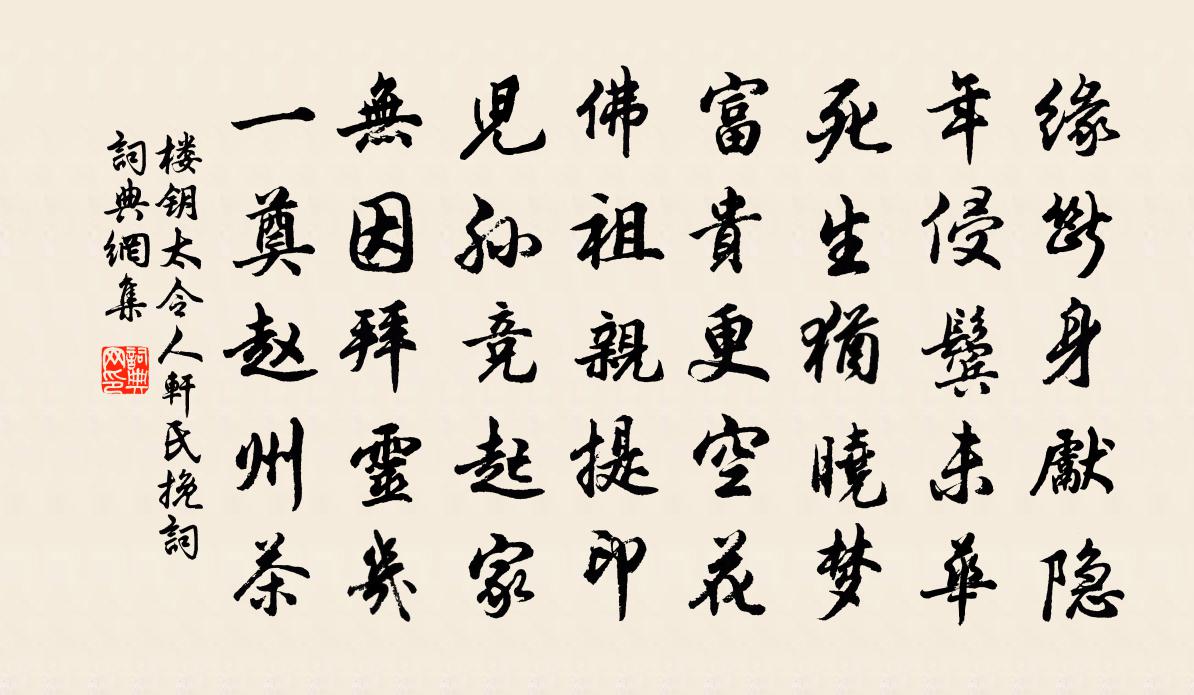 缘斷身獻隐
年侵鬓未華
死生猶曉梦
富貴更空花
佛祖親提印
児孙竞起家
無因拜靈幾
一奠赵州茶
楼钥太令人軒氏挽詞
詞典網集
詞典网印